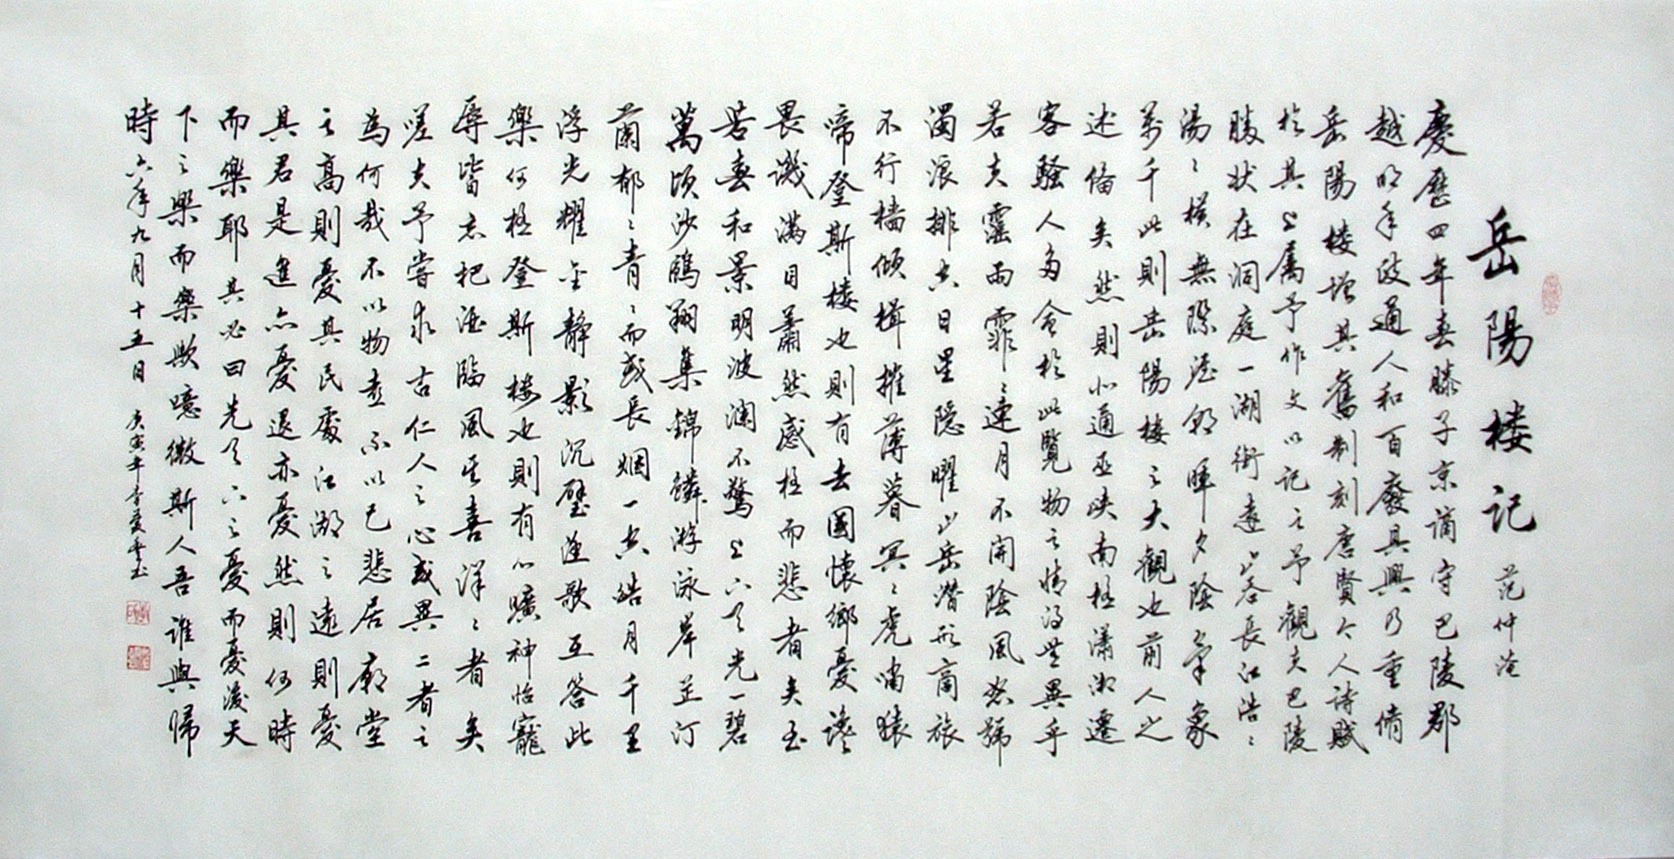 岳陽楼记 范仲淹
慶歷四年春滕子京謫守巴陵郡
越明年政通人和百廢具興乃重脩
岳陽楼增其舊制刻唐賢今人詩賦
於其上属予作文以记之予觀夫巴陵
勝状在洞庭一湖銜遠山吞長江浩〻
湯〻横無際涯朝暉夕陰氣象
萬千此則岳陽楼之大觀也前人之
述備矣然則北通巫峡南極瀟湘遷
客騷人多會於此覽物之情得無異乎
若夫霪雨霏〻連月不開陰風怒號
濁浪排空日星隐曜山岳潜形商旅
不行檣傾楫摧薄暮冥〻虎嘯猿
啼登斯楼也則有去國懷鄉憂讒
畏譏滿目蕭然感極而悲者矣至
若春和景明波瀾不驚上下天光一碧
萬頃沙鷗翔集錦鱗游泳岸芷汀
蘭郁〻青〻而或長烟一空皓月千里
浮光耀金静影沉璧渔歌互答此
樂何極登斯楼也則有心曠神怡寵
辱皆忘把酒臨風其喜洋〻者矣
嗟夫予嘗求古仁人之心或異二者之
為何哉不以物喜不以己悲居廟堂
之高則憂其民處江湖之遠則憂
其君是進亦憂退亦憂然則何時
而樂耶其必曰先天下之憂而憂後天
下之樂而樂歟噫微斯人吾谁與歸
時六年九月十五日 庚寅年李